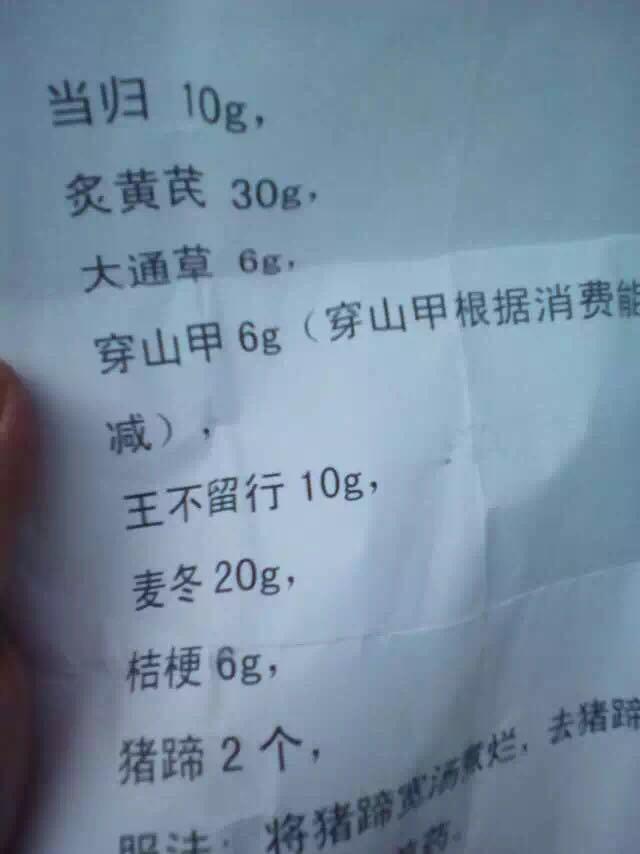 当归 10g，
炙黄芪 30g，
大通草 6g，
穿山甲 6g（穿山甲根据消费能
减），
王不留行 10g，
麦冬 20g，
桔梗 6g，
猪蹄 2 个，
服法：将猪蹄宽汤煮烂，去猪蹄